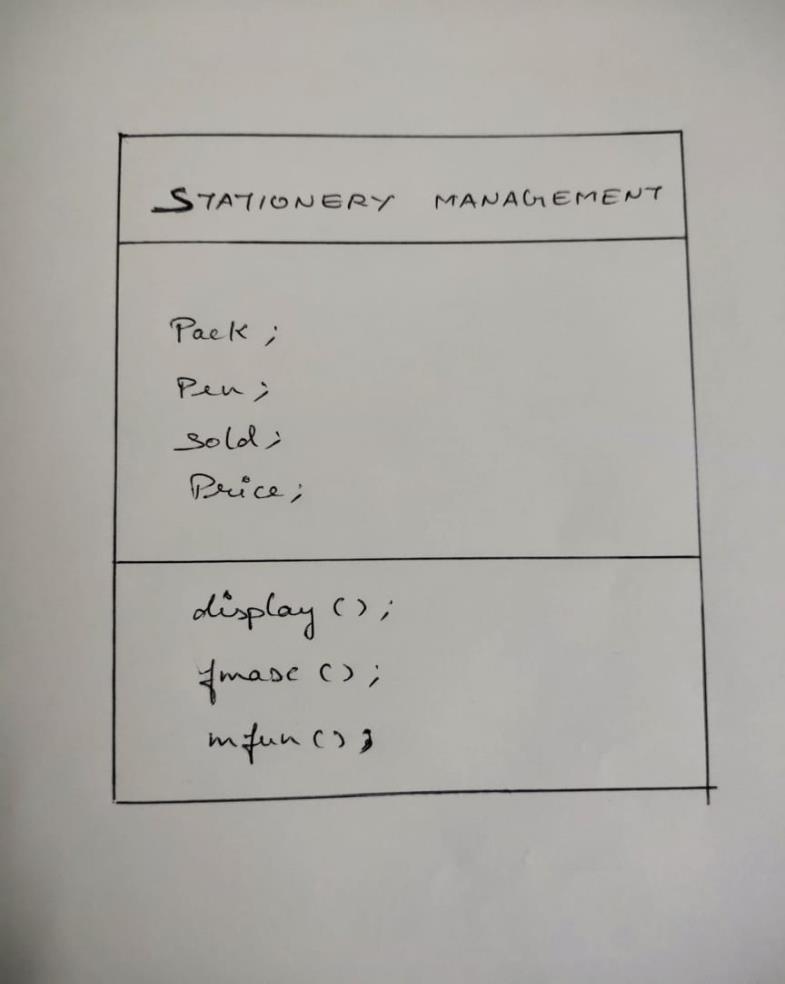 STATIONERY MANAGEMENT
Pack;
Pen;
sold;
Price;
display();
fmax();
mfun();